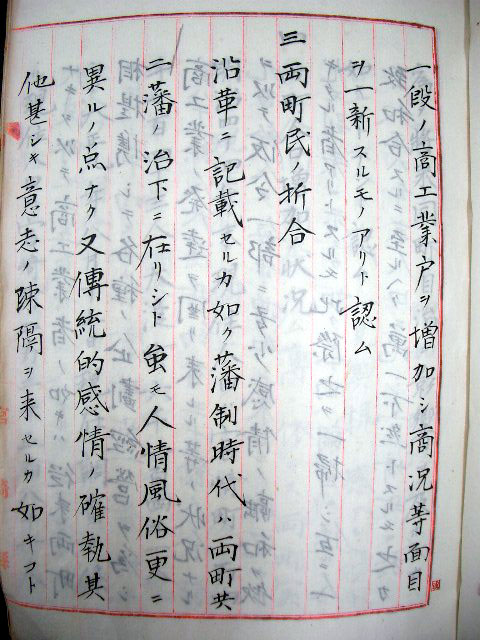 一段ノ商工業戸ヲ増加シ商況等面目
ヲ一新スルモノアリト認ム
三 両町民ノ折合
沿革ニ記載セルカ如ク藩制時代ハ両町共
二藩ノ治下ニ在リシト雖モ人情風俗更ニ
異ルノ点ナク又傳統的感情ノ確執其
他甚シキ意志ノ疎隔ヲ来セルカ如キコト